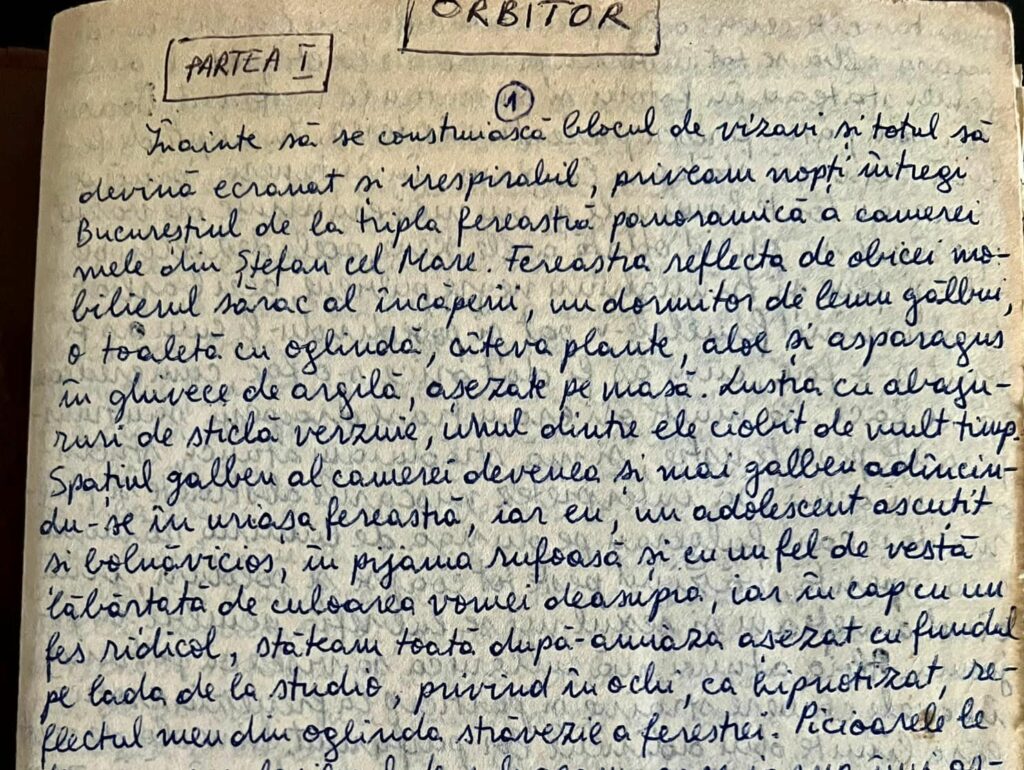 ORBITOR
PARTEA I
1
Înainte să se construiască blocul de vizavi și totul să
devină ecranat si irespirabil, priveam nopți întregi
Bucureștiul de la tripla fereastră panoramică a camerei
mele din Ștefan cel Mare. Fereastra reflecta de obicei mo-
bilierul sărac al încăperii, un dormitor de lemn gălbui,
o toaletă cu oglindă, cîteva plante, aloe și asparagus
în ghivece de argilă, așezate pe masă. Lustra cu abaju-
ruri de sticlă verzuie, unul dintre ele ciobit de mult timp.
Spațiul galben al camerei devenea și mai galben adîncin-
du-se în uriașa fereastră, iar eu, un adolescent ascuțit
si bolnăvicios, în pijama rufoasă și cu un fel de vestă
lăbărtată de culoarea vomei deasupra, iar în cap cu un
fes ridicol, stăteam toată după-amiaza așezat cu fundul
pe lada de la studio, privind în ochi, ca hipnotizat, re-
flectul meu din oglinda străvezie a ferestrei. Picioarele le